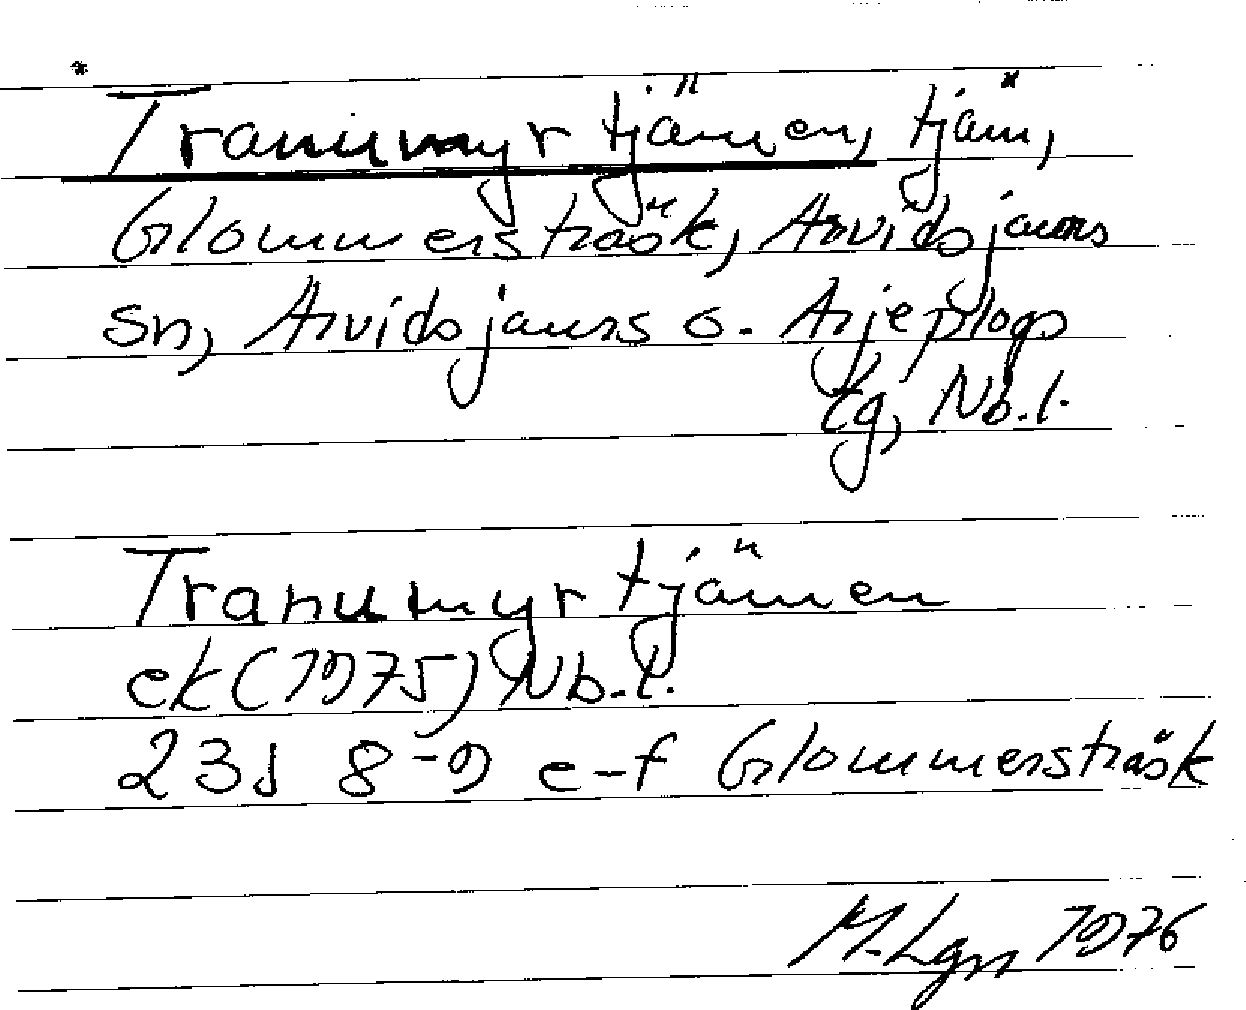 *
Tranumyrtjärnen, tjärn,
Glommersträsk, Arvidsjaurs
sn, Arvidsjaurs o. Arjeplogs
tg, Nb.l.
Tranumyrtjärnen
ek (1975) Nb.l.
23J 8-9 e-f Glommersträsk
M. Lgn 1976